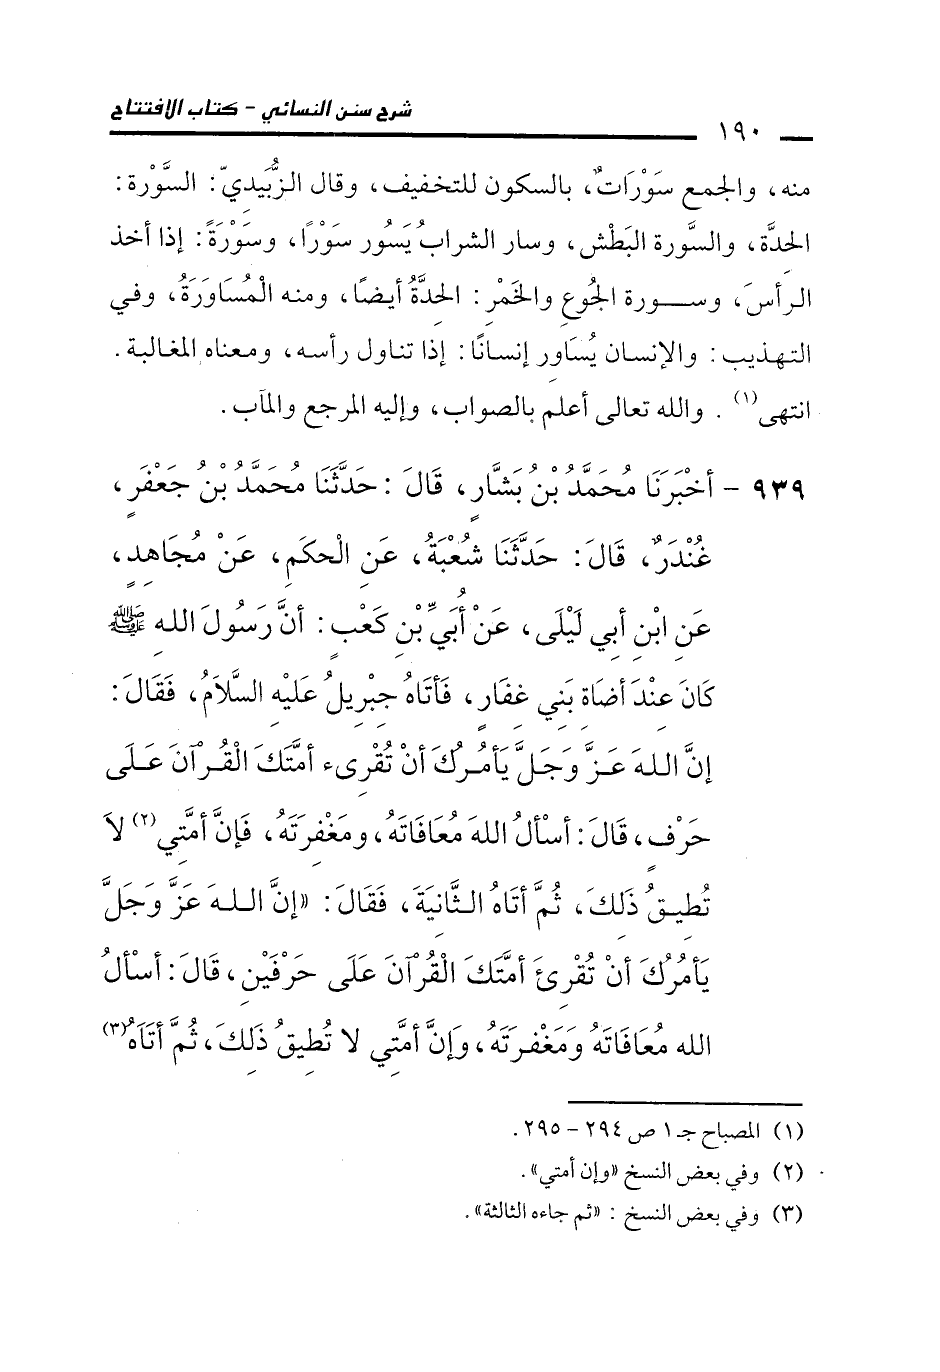 شرح سنن النسائي - كتاب الافتتاح
١٩٠
منه، والجمع سَوْرَاتٌ، بالسكون للتخفيف، وقال الزُّبَيدي: السَّوْرة:
الحدَّة، والسَّورة البَطْش، وسار الشراب يَسُور سَوْرًا، وسَوْرَةً: إذا أخذ
الرأسَ، وسورة الجُوعِ والخَمْرِ: الحدَّةُ أيضًا، ومنه الْمُسَاوَرَةُ، وفي
التهذيب: والإنسان يُسَاوِر إنسانًا: إذا تناول رأسه، ومعناه المغالبة.
انتهى(١). والله تعالى أعلم بالصواب، وإليه المرجع والمآب.
٩٣٩ - أَخْبَرَنَا مُحَمَّدُ بْنُ بَشَّارٍ، قَالَ: حَدَّثَنَا مُحَمَّدُ بْنُ جَعْفَرٍ،
غُنْدَرٌ، قَالَ: حَدَّثَنَا شُعْبَةُ، عَنِ الْحَكَمِ، عَنْ مُجَاهِدٍ،
عَنِ ابْنِ أَبِي لَيْلَى، عَنْ أُبَيِّ بْنِ كَعْبٍ: أَنَّ رَسُولَ الله ﷺ
كَانَ عِنْدَ أَضَاةِ بَنِي غِفَارٍ، فَأَتَاهُ جِبْرِيلُ عَلَيْهِ السَّلاَمُ، فَقَالَ:
إِنَّ اللهَ عَزَّ وَجَلَّ يَأْمُرُكَ أَنْ تُقْرِىء أُمَّتَكَ الْقُرآنَ عَلَى
حَرْفٍ، قَالَ: أَسْأَلُ اللهَ مُعَافَاتَهُ، وَمَغْفِرَتَهُ، فَإِنَّ أُمَّتِي(٢) لاَ
تُطِيقُ ذَلِكَ، ثُمَّ أَتَاهُ الثَّانِيَةَ، فَقَالَ: «إِنَّ اللهَ عَزَّ وَجَلَّ
يَأْمُرُكَ أَنْ تُقْرِئَ أُمَّتَكَ الْقُرآنَ عَلَى حَرْفَيْنِ، قَالَ: أَسْأَلُ
الله مُعَافَاتَهُ وَمَغْفِرَتَهُ، وَإِنَّ أُمَّتِي لا تُطِيقُ ذَلِكَ، ثُمَّ أَتَاهُ(٣)
(١) المصباح جـ ١ ص ٢٩٤ - ٢٩٥.
(٢) وفي بعض النسخ «وإن أمتي».
(٣) وفي بعض النسخ: «ثم جاءه الثالثة».